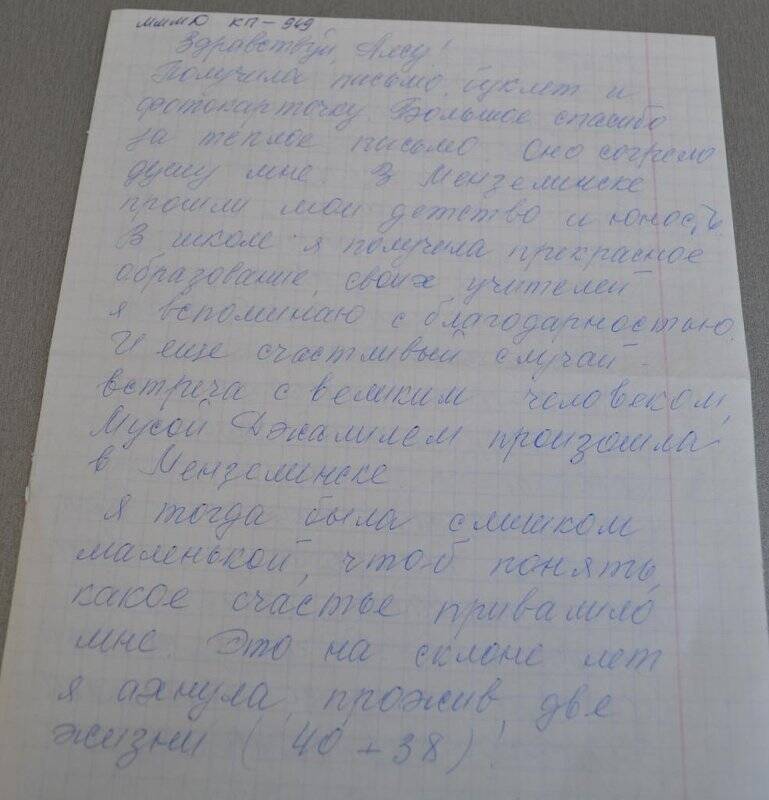 ммМЮ КП-949
Здравствуй, Алсу!
Получила письмо, буклет и
фотокарточку. Большое спасибо
за теплое письмо. Оно согрело
душу мне. В Мензелинске
прошли мои детство и юность.
В школе я получила прекрасное
образование, своих учителей
я вспоминаю с благодарностью.
И еще счастливый случай -
встреча с великим человеком,
Мусой Джалилем произошла
в Мензелинске.
Я тогда была слишком
маленькой, чтоб понять,
какое счастье привалило
мне. Это на склоне лет
я ахнула, прожив две
жизни (40 + 38)!